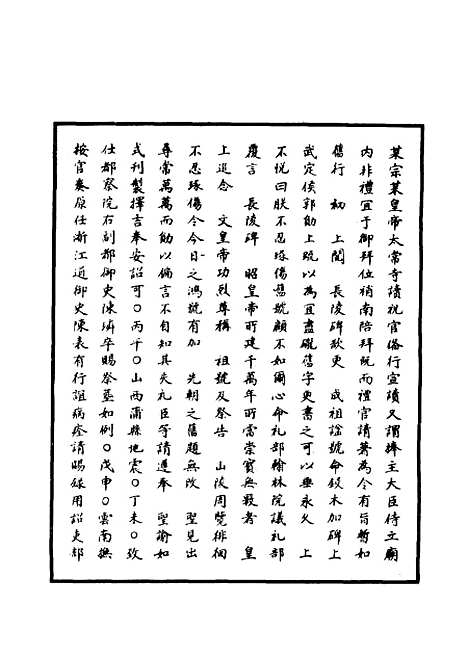 某宗某皇帝太常寺讀祝官俻行宣讀又謂捧主大臣侍立廟
内非禮宜于御拜位稍南陪拜既而禮官請著為令有旨暫如
舊行　初　上閱　長陵碑欲更　成祖諡號命鋟木加碑上
武定侯郭勛上疏以為宜盡礲舊字更書之可以垂永久　上
不悦曰朕不忍琢傷舊號顧不如爾心命礼部翰林院議礼部
覆言　長陵碑　昭皇帝所建千萬年所當崇寳無斁者　皇
上追念　文皇帝功烈尊稱　祖號及祭告　山陵周覽徘徊
不忍琢傷令今日之鴻號有加　先朝之舊題無改　聖見出
尋常萬萬而勛以偏言不自知其失礼臣等請遵奉　聖諭如
式刋製擇吉奉安詔可○丙午○山西蒲縣地震○丁未○致
仕都察院右副都御史陳璘卒賜祭墓如例○戊申○雲南撫
按官奏原任浙江道御史陳表有行誼病痊請賜録用詔吏部